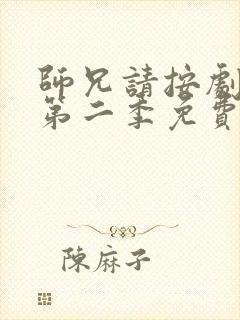 師兄請按劇
第二季免費
陳麻子